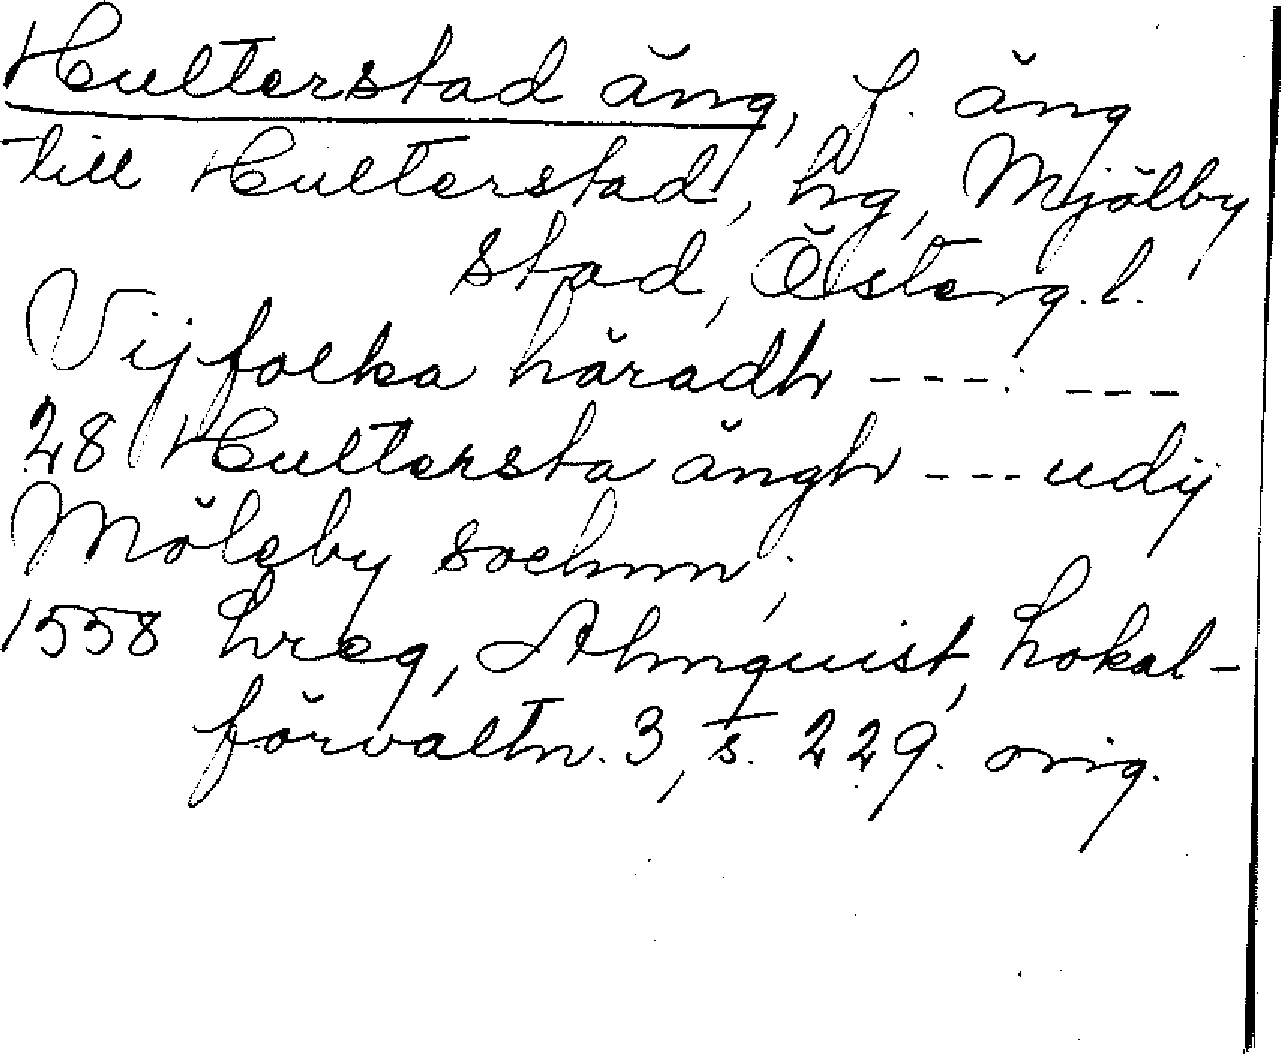 Hulterstad äng, f. äng
till Hulterstad, hg, Mjölby
stad, Österg. l.
Vijfolka häradh ---. ---
28 Hultersta ängh --- udij
Möleby sochnn;
1558 hreg, Almquist, Lokal-
förvaltn. 3, s. 229. orig.